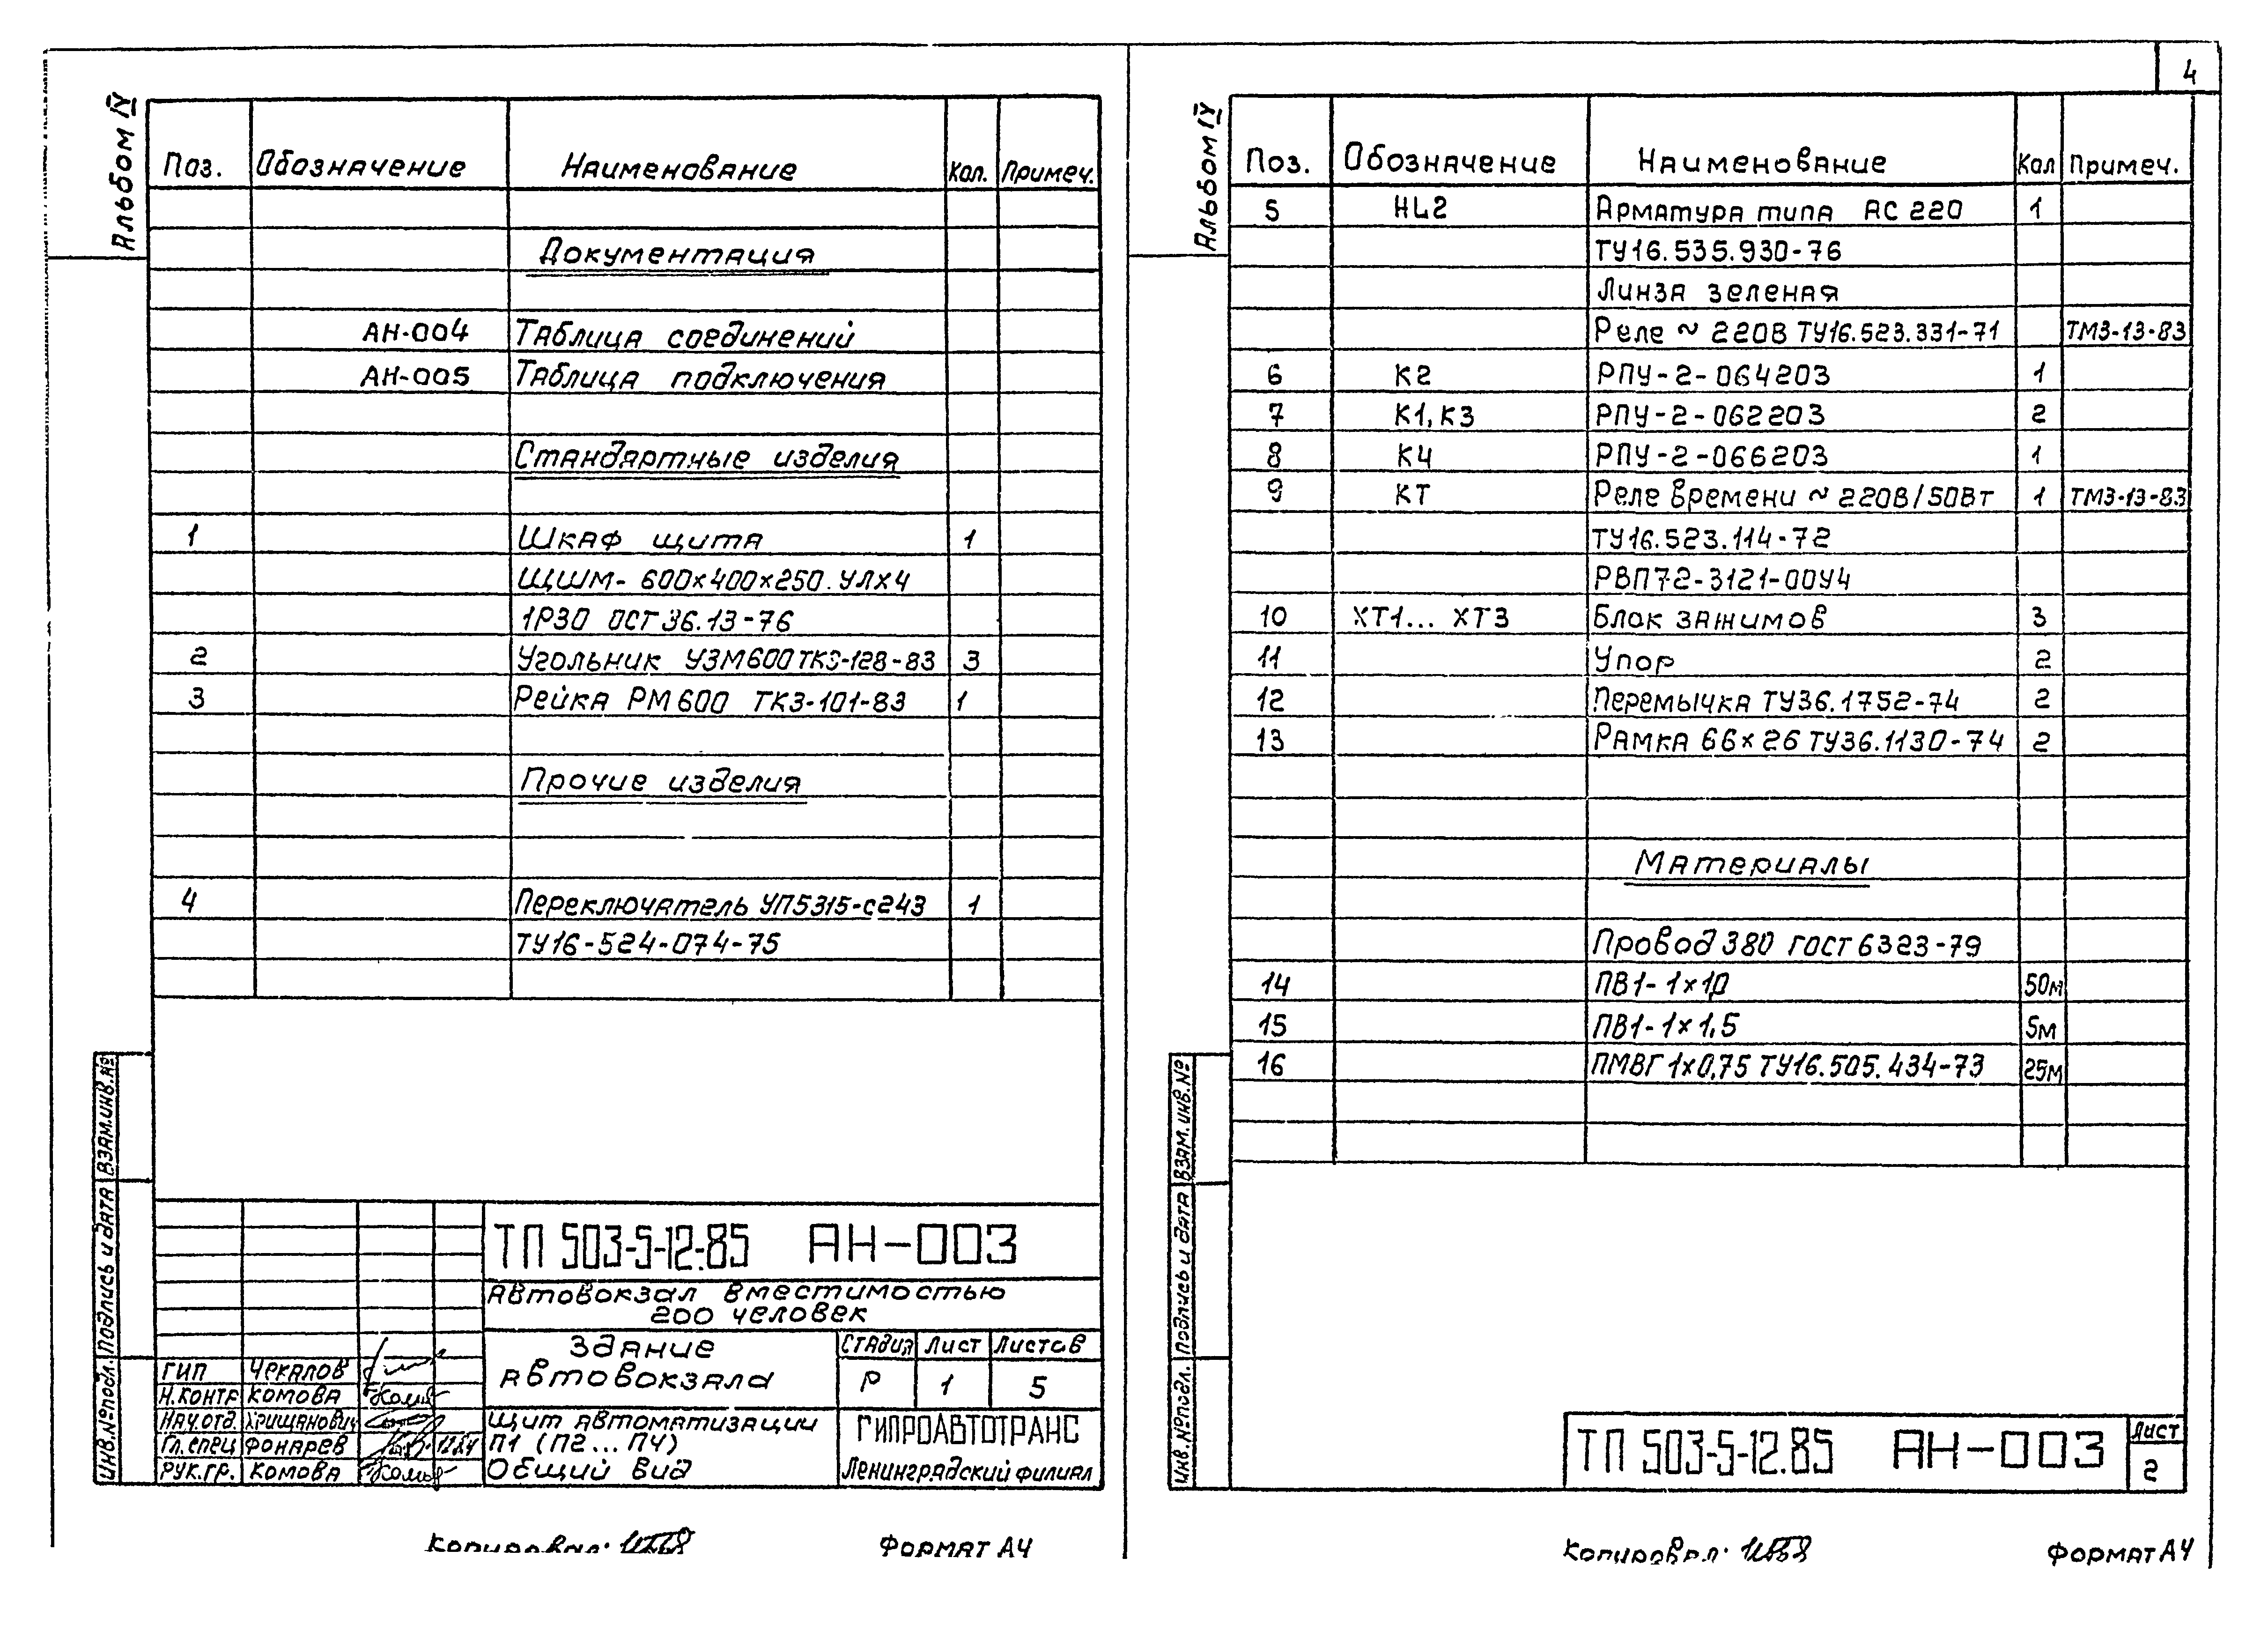 4
Альбом IV
Поз. Обозначение Наименование Кол. Примеч.
Документация
АН-004 Таблица соединений
АН-005 Таблица подключения
Стандартные изделия
1 Шкаф щита 1
ЩШМ- 600×400×250.УЛХ4
1Р30 ОСТ 36.13-76
2 Угольник УЗМ600 ТК3-128-83 3
3 Рейка РМ600 ТК3-101-83 1
Прочие изделия
4 Переключатель УП5315-С243 1
ТУ16-524-074-75
Взам.инв.№
Подпись и дата
Инв.№подл.
ТП 503-5-12.85 АН-003
Автовокзал вместимостью
200 человек
Здание
автовокзала
Стадия Лист Листов
Р 1 5
ГИП Чекалов
Н.контр Комова
Нач.отд. Хришанович
Гл.спец Фонарев 12.84
Рук.гр. Комова
Щит автоматизации
П1 (П2... П4)
Общий вид
ГИПРОАВТОТРАНС
Ленинградский филиал
Копировал:
Формат А4
Альбом IV
Поз. Обозначение Наименование Кол Примеч.
5 HL2 Арматура типа АС 220 1
ТУ16.535.930-76
Линза зеленая
Реле ~ 220В ТУ16.523.331-71 ТМ3-13-83
6 К2 РПУ-2-064203 1
7 К1, К3 РПУ-2-062203 2
8 К4 РПУ-2-066203 1
9 КТ Реле времени ~ 220В/50Вт 1 ТМ3-13-83
ТУ16.523.114-72
РВП72-3121-00У4
10 ХТ1... ХТ3 Блок зажимов 3
11 Упор 2
12 Перемычка ТУ36.1752-74 2
13 Рамка 66×26 ТУ36.1130-74 2
Материалы
Провод 380 ГОСТ 6323-79
14 ПВ1- 1×1,0 50м
15 ПВ1- 1×1,5 5м
16 ПМВГ 1×0,75 ТУ16.505.434-73 25м
Взам.инв.№
Подпись и дата
Инв.№подл.
ТП 503-5-12.85 АН-003
Лист
2
Копировал:
Формат А4